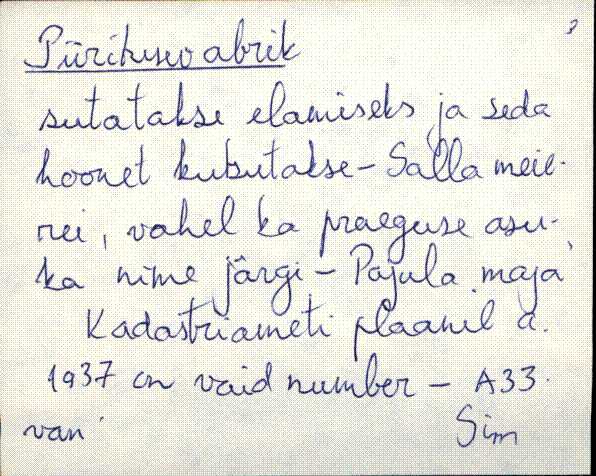 3
Piirikusevabrik
sutatakse elamiseks ja seda
hoonet kutsutakse - Salla meie-
rei, vahel ka praeguse asu-
ka nime järgi - Pajula maja
Kadastriameti plaanil a.
1937 on vaid number - A33.
van
Sim